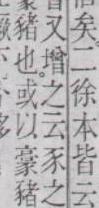 矣二徐本皆云
又增之云豕之
豪豬也或以豪豬